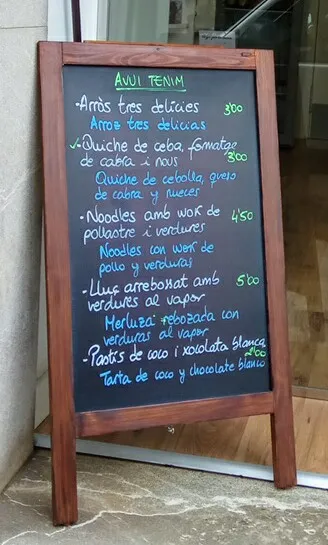 AVUI TENIM
-Arròs tres delícies 3'00
Arroz tres delicias
-Quiche de ceba, formatge
de cabra i nous 3'00
Quiche de cebolla, queso
de cabra y nueces
-Noodles amb wok de 4'50
pollastre i verdures
Noodles con work de
pollo y verduras
-Lluç arrebonat amb 5'00
verdures al vapor
Merluza rebozada con
verduras al vapor
-Pastís de coco i xocolata blanca
2'00
Tarta de coco y chocolate blanco